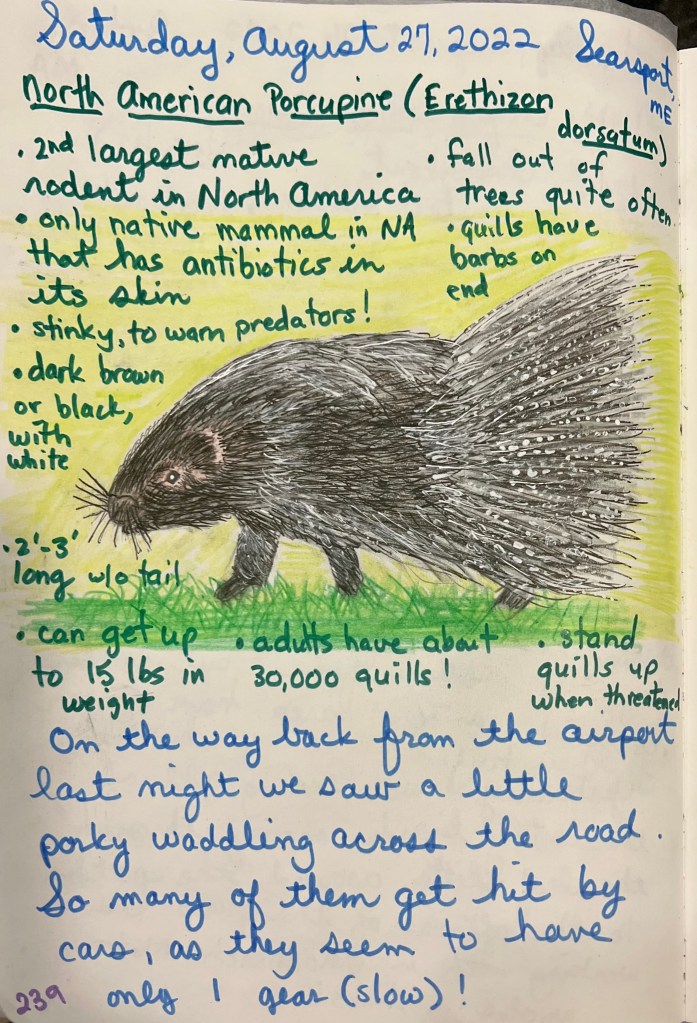 Saturday, August 27, 2022 Searsport, ME
North American Porcupine (Erethizon dorsatum)
• 2nd largest native
rodent in North America
• only native mammal in NA
that has antibiotics in
its skin
• stinky, to warn predators!
• dark brown
or black,
with
white
• fall out of
trees quite often
• quills have
barbs on
end
• 2'-3'
long w/o tail
• can get up
to 15 lbs in
weight
• adults have about
30,000 quills!
• stand
quills up
when threatened
On the way back from the airport
last night we saw a little
porky waddling across the road.
So many of them get hit by
cars, as they seem to have
only 1 gear (slow)!
239